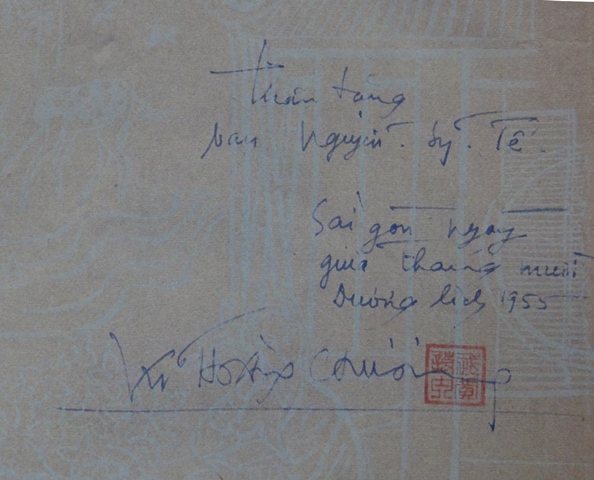 Thân tặng
bạn Nguyễn. Sỹ. Tế.
Sài gòn ngày
giữa tháng mười
Dương lịch 1955
Vũ Hoàng Chương